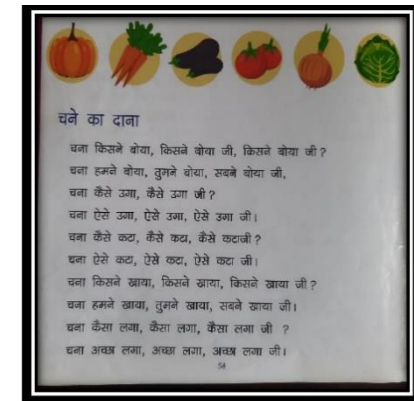 चने का दाना
चना किसने बोया, किसने बोया जी, किसने बोया जी ?
चना हमने बोया, तुमने बोया, सबने बोया जी,
चना कैसे उगा, कैसे उगा जी ?
चना ऐसे उगा, ऐसे उगा, ऐसे उगा जी।
चना कैसे कटा, कैसे कटा, कैसे कटाजी ?
चना ऐसे कटा, ऐसे कटा, ऐसे कटा जी।
चना किसने खाया, किसने खाया, किसने खाया जी ?
चना हमने खाया, तुमने खाया, सबने खाया जी।
चना कैसा लगा, कैसा लगा, कैसा लगा जी ?
चना अच्छा लगा, अच्छा लगा, अच्छा लगा जी।
58